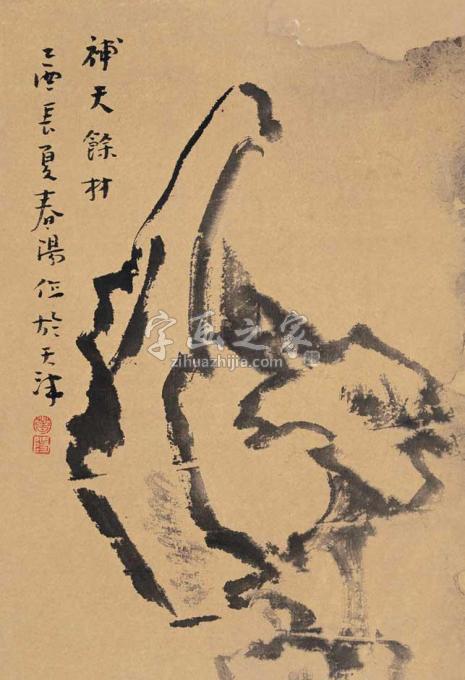 補天餘材
乙酉長夏春陽作於天津
字画之家
zihuazhijia.com